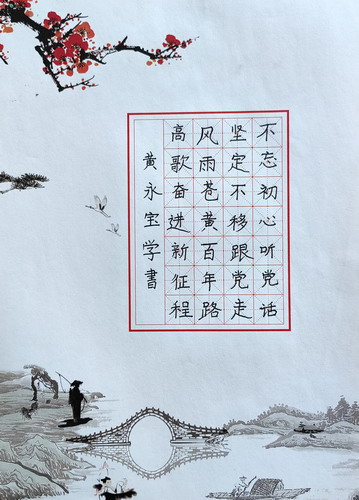 不忘初心听党话
坚定不移跟党走
风雨苍黄百年路
高歌奋进新征程
黄永宝学書